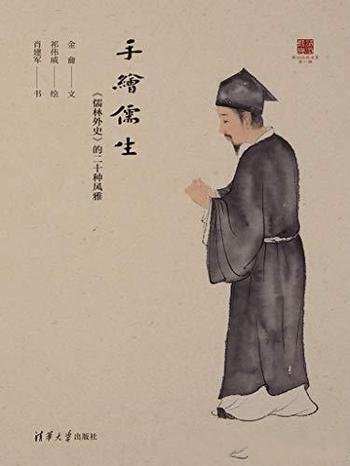 手繪儒生
《儒林外史》的二十种风雅
金俞——文
祁伟威——绘
肖建军——书
清華大学出版社